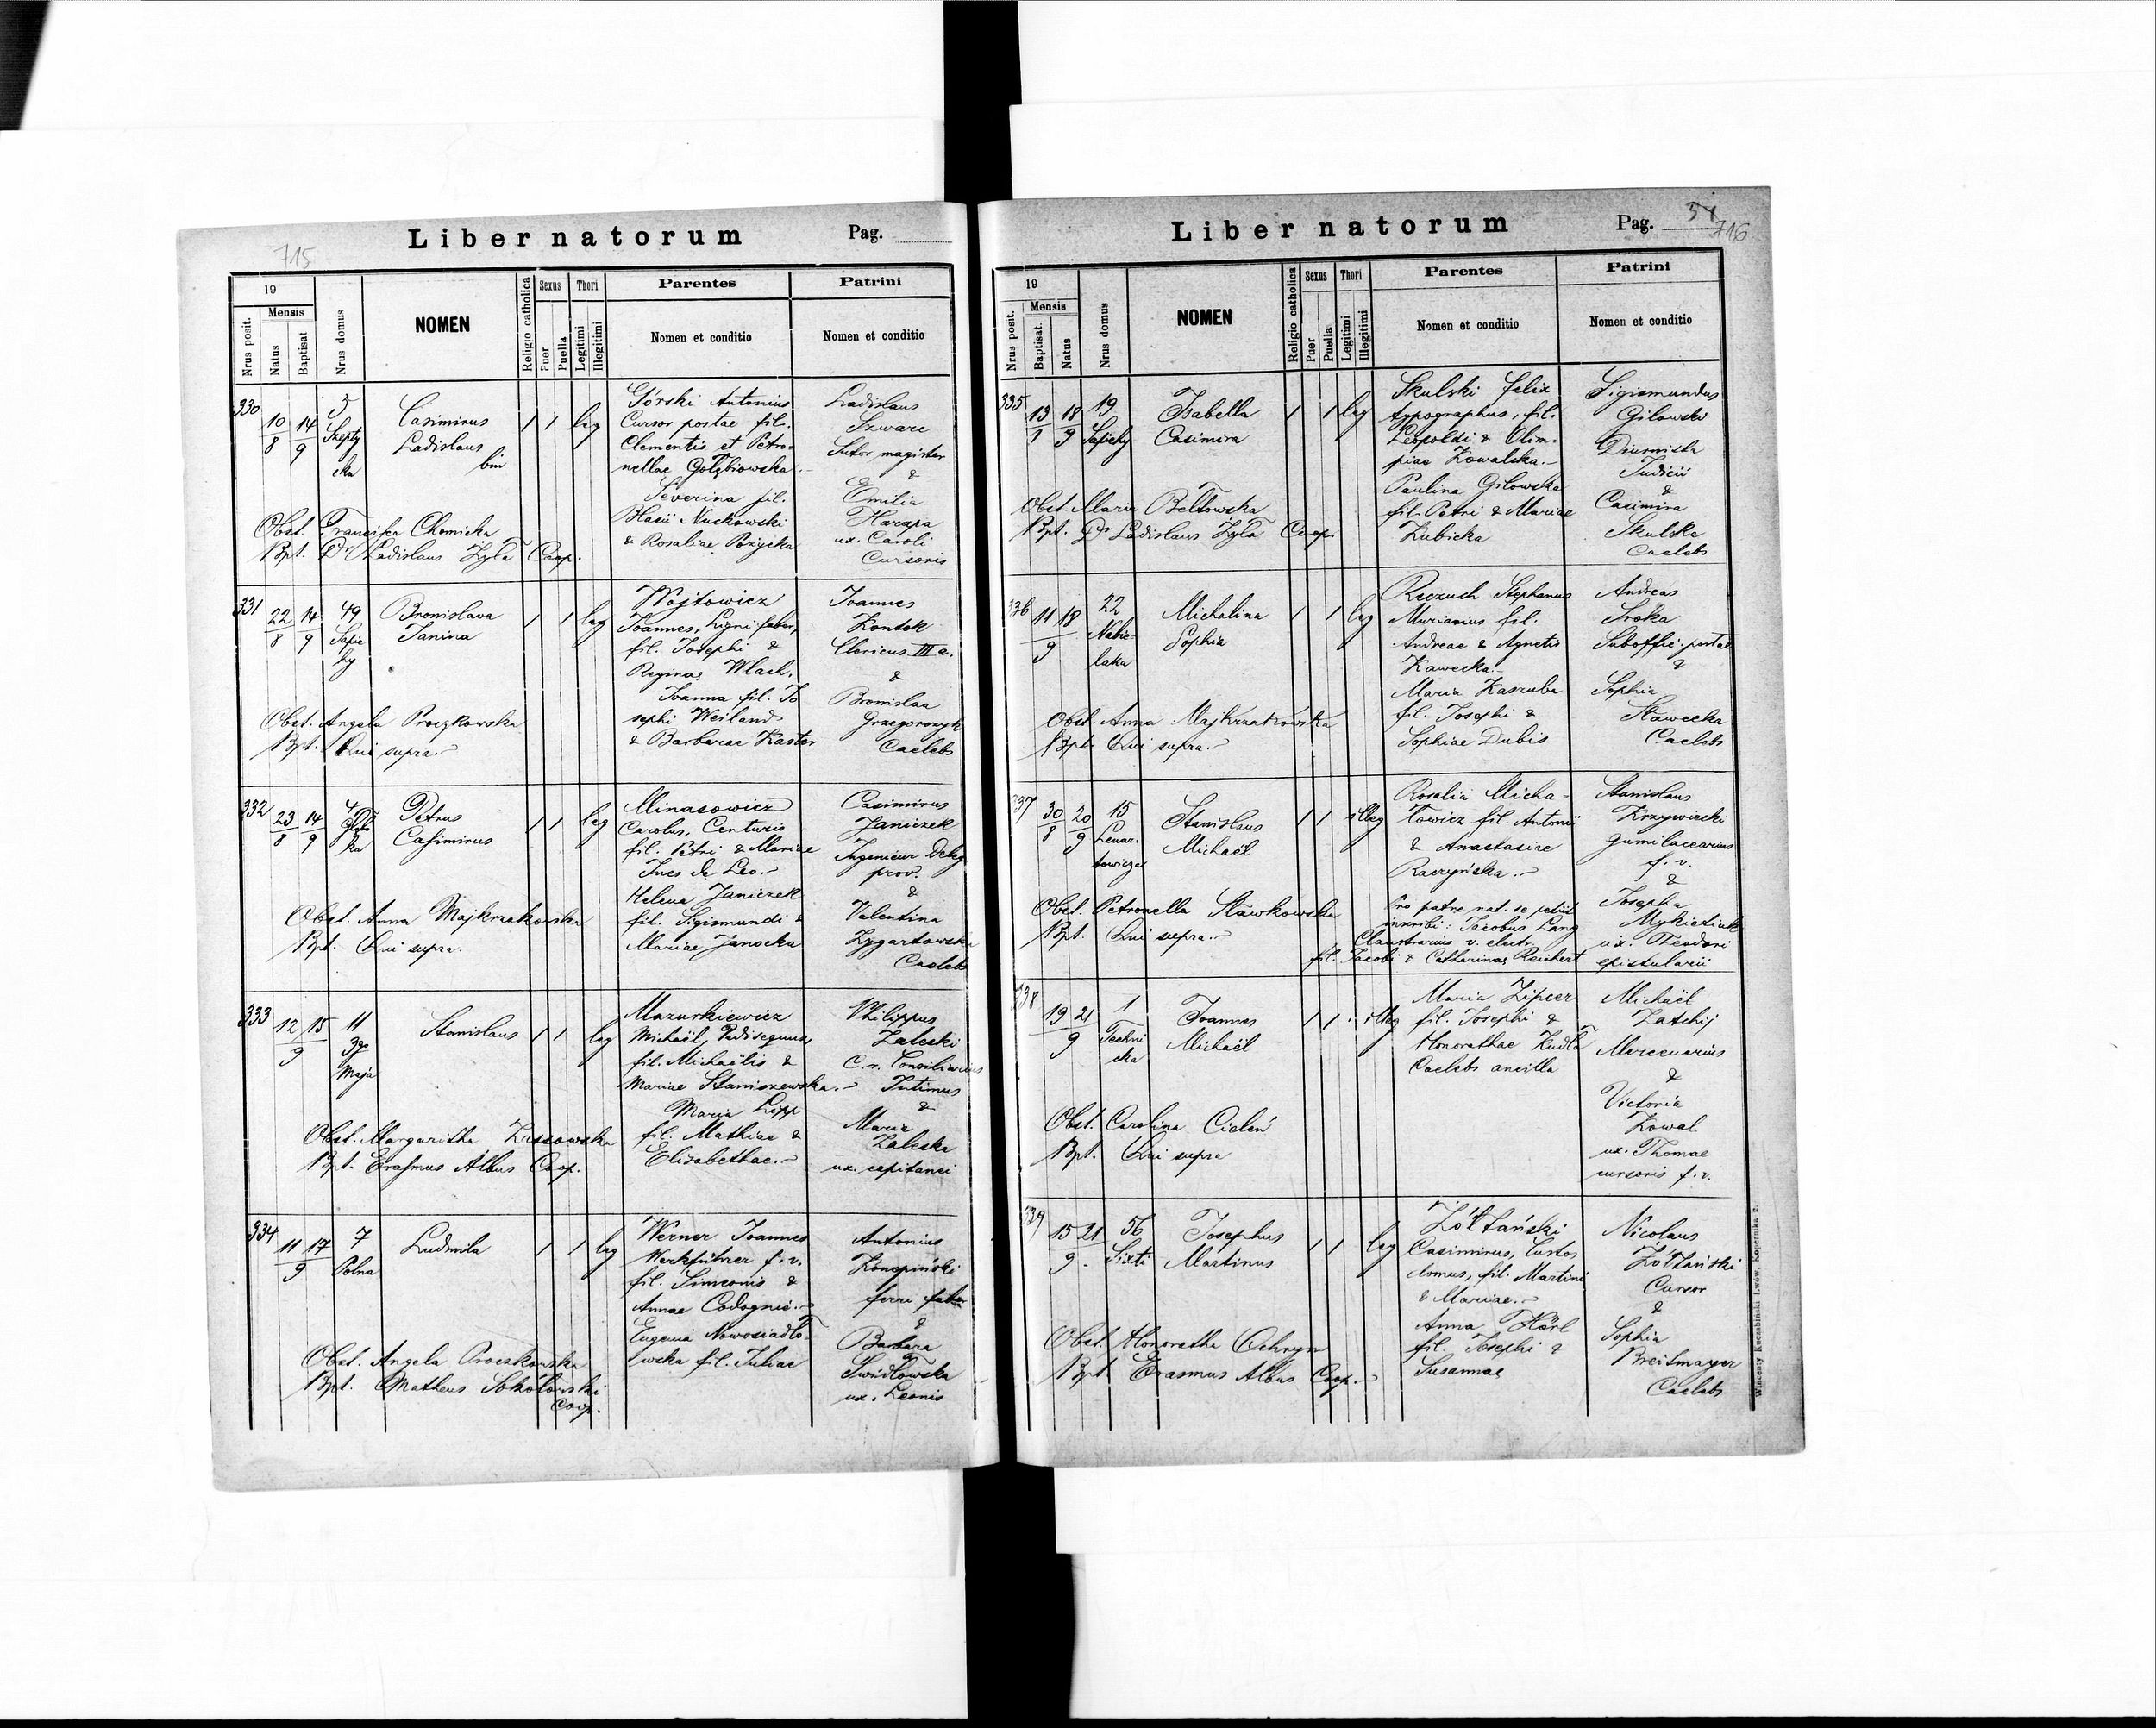 715
Liber natorum Pag.
19
Mensis
Nrus posit.
Natus
Baptisat
Nrus domus
NOMEN
Religio catholica
Sexus
Puer
Puella
Thori
Legitimi
Illegitimi
Parentes
Nomen et conditio
Patrini
Nomen et conditio
330 10/8 14/9 5 Szepty
cka
Casimirus
Ladislaus
bin
1 1 leg
Górski Antonius
Cursor postae fil.
Clementis et Petro-
nellae Gołębiowska.-
Severina fil.
Blasii Nuckowski
& Rosaliae Pożycka
Ladislaus
Szwarc
Sutor magister
&
Emilia
Harapa
ux. Caroli
Cursoris
Obst. Francisca Chomicka
Bpt. Dr Ladislaus Żyła Coop.
331 22/8 14/9 49
Sapie
hy
Bronislava
Janina
1 1 leg
Wojtowicz
Joannes, Ligni faber,
fil. Josephi &
Reginae Wlach.
Joanna fil. Jo
sephi Weiland
& Barbarae Kaster
Joannes
Kontek
Clericus III a.
&
Bronislaa
Grzegorczyk
Caelebs
Obst. Angela Proczkowska
Bpt. Qui supra.
332 23/8 14/9
Petrus
Casimirus
1 1 leg
Minasowicz
Carolus, Centuris
fil. Petri & Mariae
Ines de Leo.-
Helena Janiczek
fil. Sigismundi &
Mariae Janocka
Casimirus
Janiczek
Ingenieur Deleg
prov.
&
Valentina
Zygartowska
Caelebs
Obst. Anna Majkrzakowska
Bpt. Qui supra.
333 12 15/9 11
3go
Maja
Stanislaus
1 1 leg
Mazurkiewicz
Michaël, Pedisequus,
fil. Michaëlis &
Mariae Staniszewska.-
Maria Lipp
fil. Mathiae &
Elisabethae.-
Philippus
Zaleski
C. r. Consiliarius
Intimus
&
Maria
Zaleska
ux. capitanei
Obst. Margaritha
Bpt. Erasmus Albus Coop.
334 11 17/9 7
Polna
Ludmila
1 1 leg
Werner Joannes
Werkführer f. v.
fil. Simeonis &
Annae Codognie.-
Eugenia Nowosiadło-
wska fil. Juliae
Antonius
Konopiński
ferri faber
&
Barbara
Świdłowska
ux. Leonis
Obst. Angela Proczkowska
Bpt. Matheus Sokołowski
Coop.
Liber natorum Pag. 54
716
19
Mensis
Nrus posit.
Baptisat.
Natus
Nrus domus
NOMEN
Religio catholica
Sexus
Puer
Puella
Thori
Legitimi
Illegitimi
Parentes
Nomen et conditio
Patrini
Nomen et conditio
335 13/1 18/9 19
Sapiehy
Isabella
Casimira
1 1 leg
Skulski Felix
typographus, fil.
Leopoldi & Olim-
piae Kowalska.-
Paulina Gilowska
fil. Petri & Mariae
Zubicka
Sigismundus
Gilowski
Diurnista
Judicii
&
Casimira
Skulska
Caelebs
Obst. Maria Bełtowska
Bpt. Dr Ladislaus Żyła Coop.
336 11 18/9 22
Nabie-
laka
Michalina
Sophia
1 1 leg
Reczuch Stephanus
Murianius fil.
Andreae & Agnetis
Kawecka.-
Maria Kaszuba
fil. Josephi &
Sophiae Dubis
Andreas
Sroka
Suboffic. postae
&
Sophia
Stawecka
Caelebs
Obst. Anna Majkrzakowska
Bpt. Qui supra.-
337 30/8 20/9 15
Lenar-
towicza
Stanislaus
Michaël
1 1 illeg
Rosalia Micha-
łowicz fil. Antonii
& Anastasiae
Raczyńska.-
Pro patre nat. se petiit
inscribi: Jacobus Lang
Claustrarius v. electr.
fil. Jacobi & Catharinae Reichert
Stanislaus
Krzywiecki
gumilacearius
f. v.
&
Josepha
Mykietiuk
ux. Theodori
epistularii
Obst. Petronella Sławkowska
Bpt. Qui supra.-
338 19 21/9 1
Techni
cka
Joannes
Michaël
1 1 illeg
Maria Zipcer
fil. Josephi &
Honorathae Kudła
Caelebs ancilla
Michaël
Zatchij
Mercenarius
&
Victoria
Kowal
ux. Thomae
cursoris f. v.
Obst. Carolina Cieleń
Bpt. Qui supra
339 15 21/9. 56
Sixti
Josephus
Martinus
1 1 leg
Żółtański
Casimirus, Custos
domus, fil. Martini
& Mariae.-
Anna Hörl
fil. Josephi &
Susannae
Nicolaus
Żółtański
Cursor
&
Sophia
Breitmayer
Caelebs
Obst. Honoratha Ochrym
Bpt. Erasmus Albus Coop.-
Wincenty Kuczabiński Lwów, Kopernika 2.